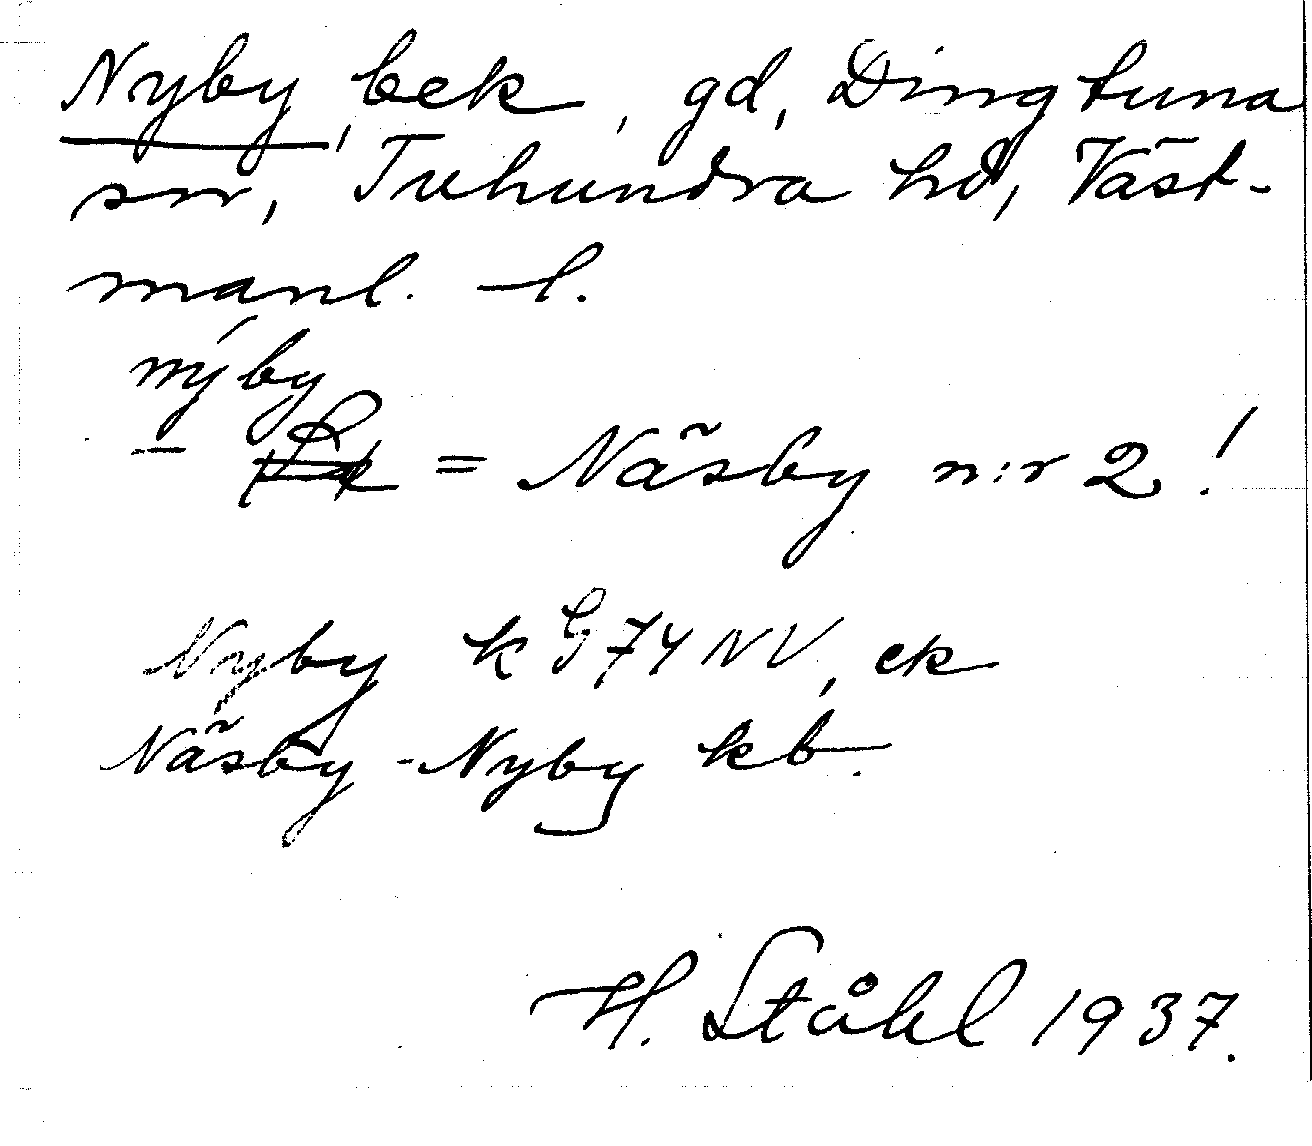 Nyby, bek, gd, Dingtuna
sn, Tuhundra hd, Väst-
manl. l.
nýby
– = Näsby n:r 2!
Nyby k G 74 NV, ek
Näsby-Nyby kb.
H. Ståhl 1937.